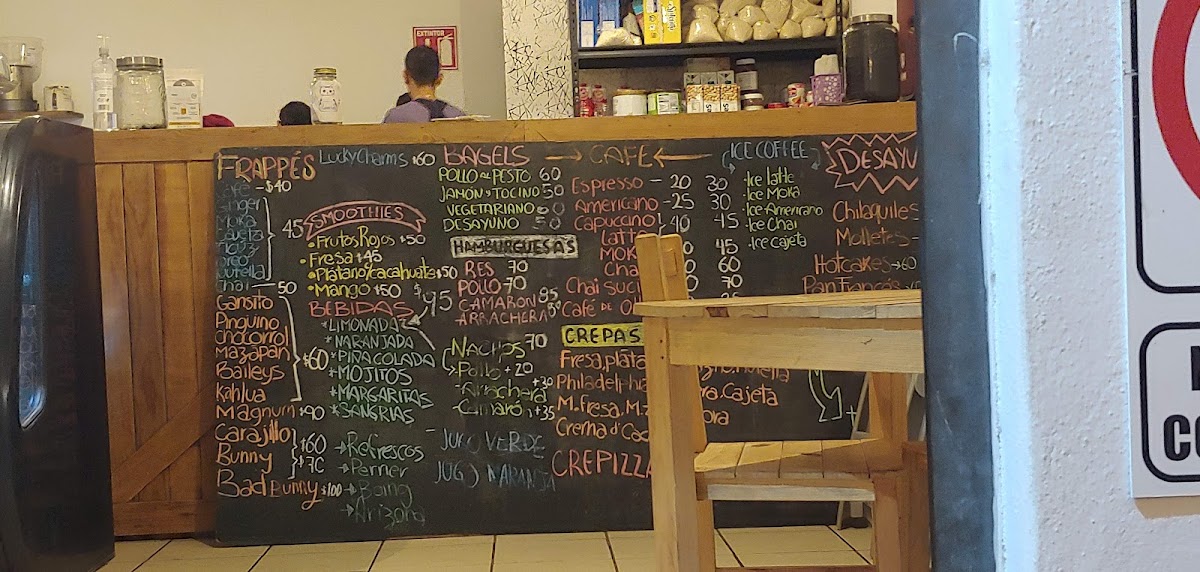 EXTINTOR
FRAPPÉS
-$40
Moka
Oreo
Nutella
45
Chai - 50
Gansito
Pinguino
Chocorrol
Mazapan
Baileys
Kahlua
$60
Magnum $90
Carajillo
Bunny
$60
Bad Bunny $100
Lucky Charms $60
SMOOTHIES
Frutos Rojos $50
Fresa $45
Platano/cacahuate $50
Mango $50
BEBIDAS $95
LIMONADA
NARANJADA
PIÑA COLADA
MOJITOS
MARGARITAS
SANGRIAS
Refrescos
Perrier
Boing
Arizona
BAGELS
POLLO AL PESTO 60
JAMÓN Y TOCINO 50
VEGETARIANO 60
DESAYUNO 50
HAMBURGUESAS
RES 70
POLLO 70
CAMARON 85
ARRACHERA
NACHOS 70
Pollo +20
Arrachera +30
Camarón +35
JUGO VERDE
JUGO NARANJA
CAFE
Espresso - 20 30
Americano - 25 30
Capuccino 40 45
Latte
MOK
45
Cha
60
Chai Suci
70
Café DE O
CREPAS
Fresa, pláta
Nutella
Philadelphia
Cajeta
M. Fresa, M. Z
ora
Crema d' Cac
CREPIZZA
ICE COFFEE
Ice latte
Ice Moka
Ice Americano
Ice Chai
Ice Cajeta
DESAYU
Chilaquiles
Molletes -
Hotcakes → 60
Pan Francés
CO